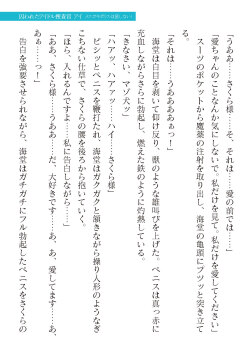 囚われたアイドル捜査官 アイ
「うああ……さくら様……そ、それは……愛の前では……」
「愛ちゃんのことなんか気にしないで。私だけを見て。私だけを愛してください」
スーツのポケットから魔薬の注射を取り出し、海堂の亀頭にブツッと突き立て
る。
「それは……うああああぁっ！」
海堂は白目を剥いて仰け反り、獣のような雄叫びを上げた。ペニスは真っ赤に
充血しながらさらに勃起し、燃えた鉄のように灼熱している。
「きなさい、マゾ犬？」
「ハァッ……ハアァッ……ハイ……さくら様」
ビシッとペニスを鞭打たれ、海堂はガクガクと頷きながら操り人形のようなぎ
こちない仕草で、さくらの腰を後ろから抱いていく。
「ほら、入れるんですよ……私に告白しながら……」
「ああ……さくら様……だ、大好きです……あ、あ、愛してます……あ、
あぁ……っ！」
告白を強要させられながら、海堂はガチガチにフル勃起したペニスをさくらの